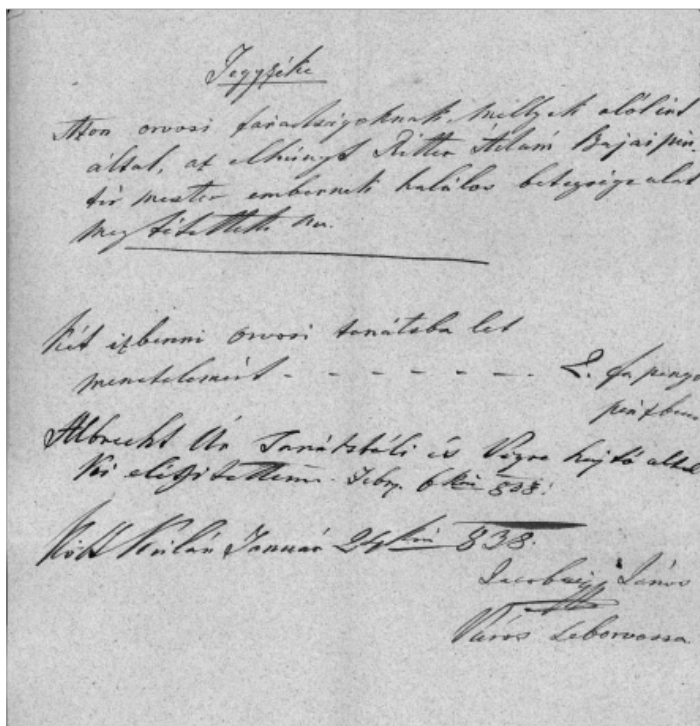 Jegyzéke
Azon orvosi fáradságoknak, mellyek alólirt
által, az elhúnyt Ritter Ádám Bajai pin,
tér mester embernek halálos betegsége alat
meg tétettek
Két izbenni orvosi tanátsba let
menetelemért - - - - - - - 2. f pengő
pénzben
Albrecht Úr Tanátsbéli és Végre hajtó által
ki elégitettem. Febr. 6kán 838.
Költ Január 24kén 838.
János
Város Seborvossa